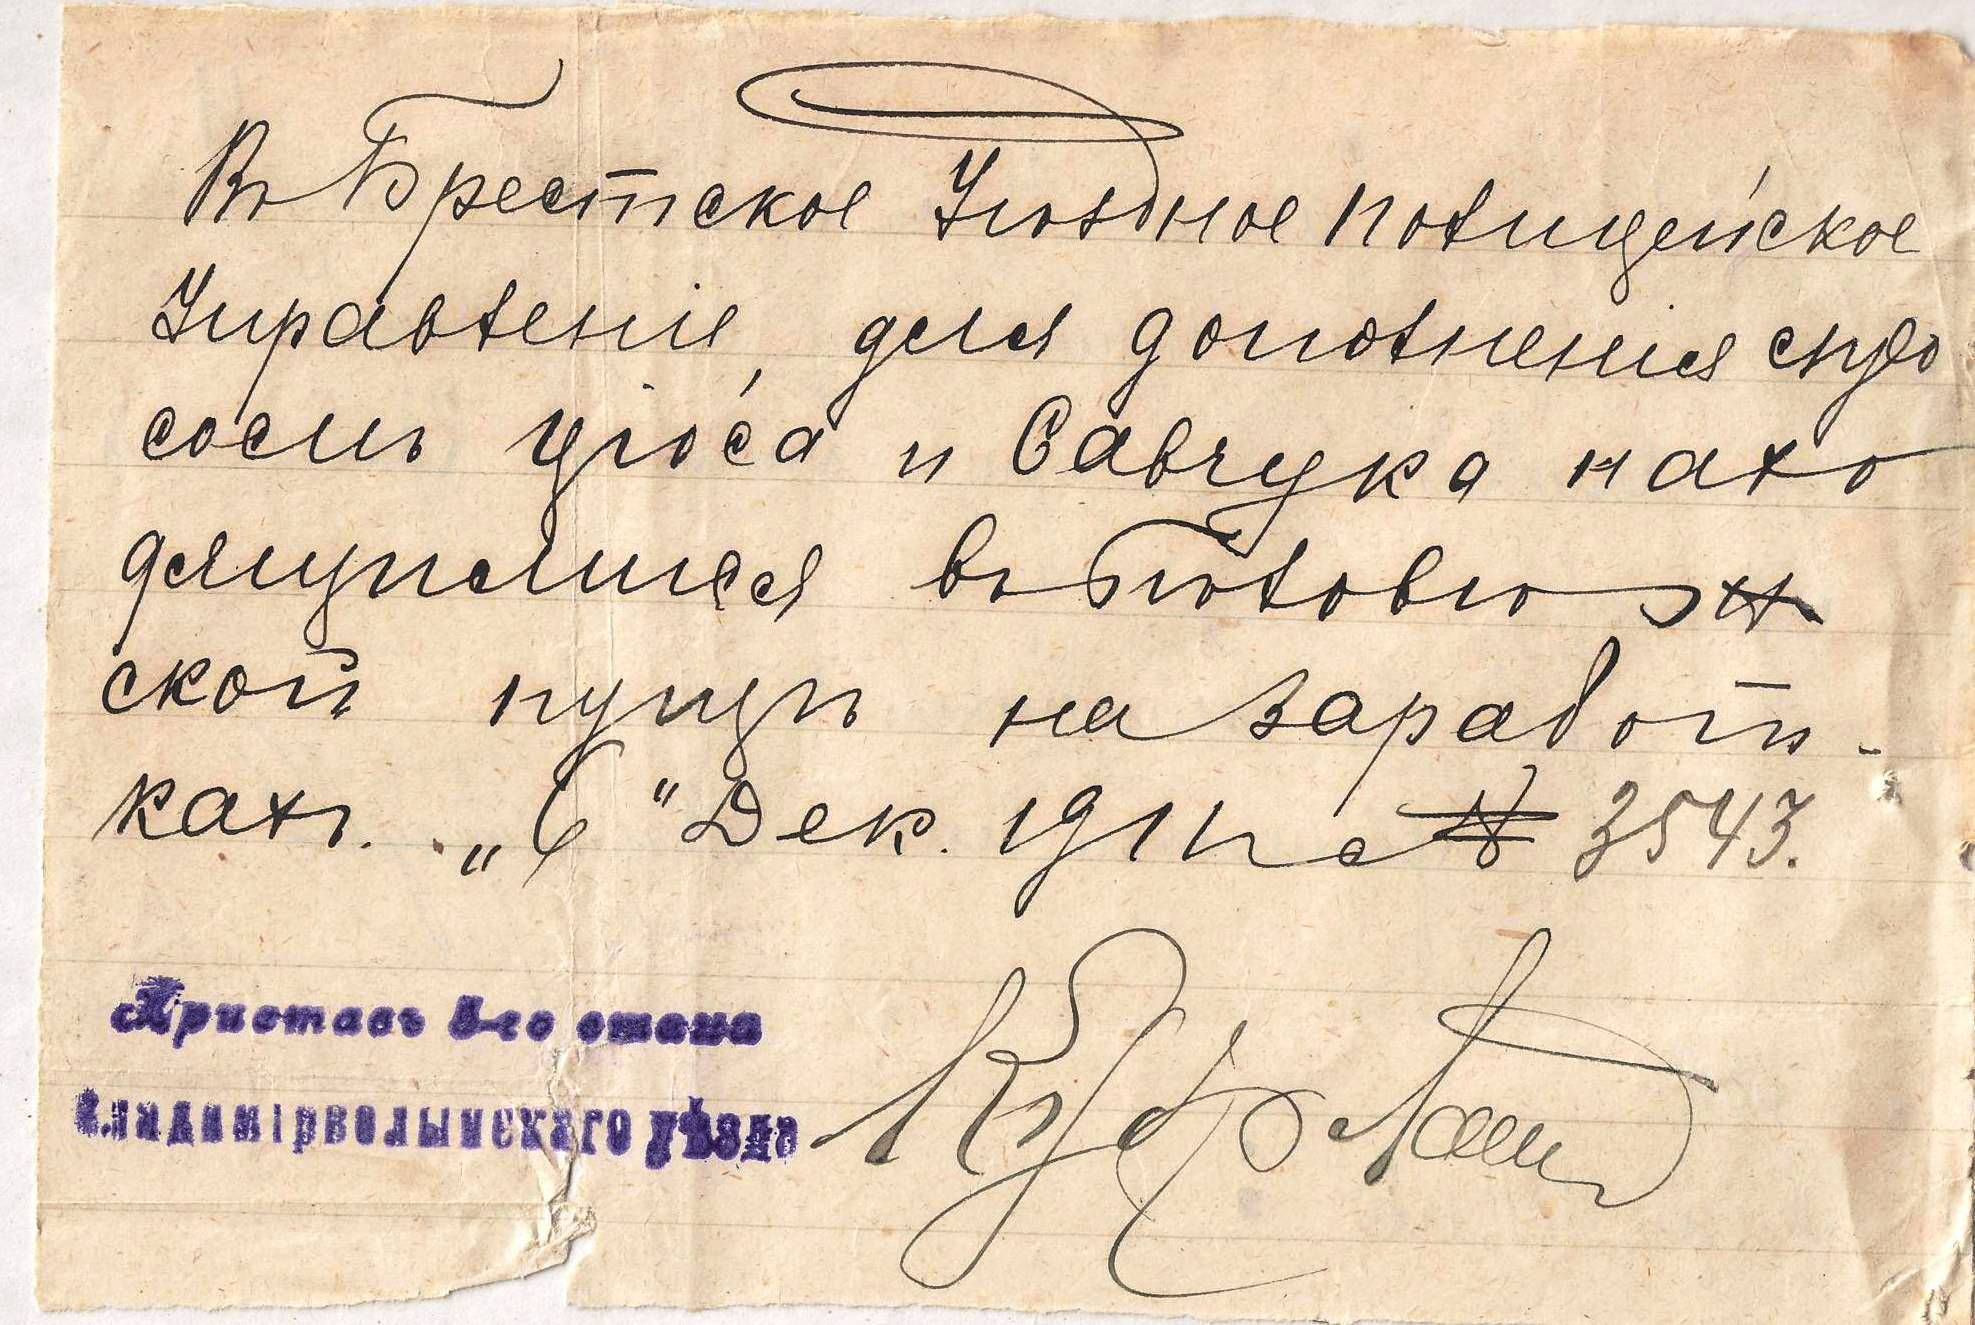 Въ Брестское Уѣздное полицейское
Управленіе, для дополненія спро
сомъ Цюса и Савчука нахо
дящимися въ Бѣловѣж
ской пущѣ на заработ-
кахъ. „6" Дек. 1911 г. № 3543.
Приставъ 5-го стана
Владимірволынскаго уѣзда